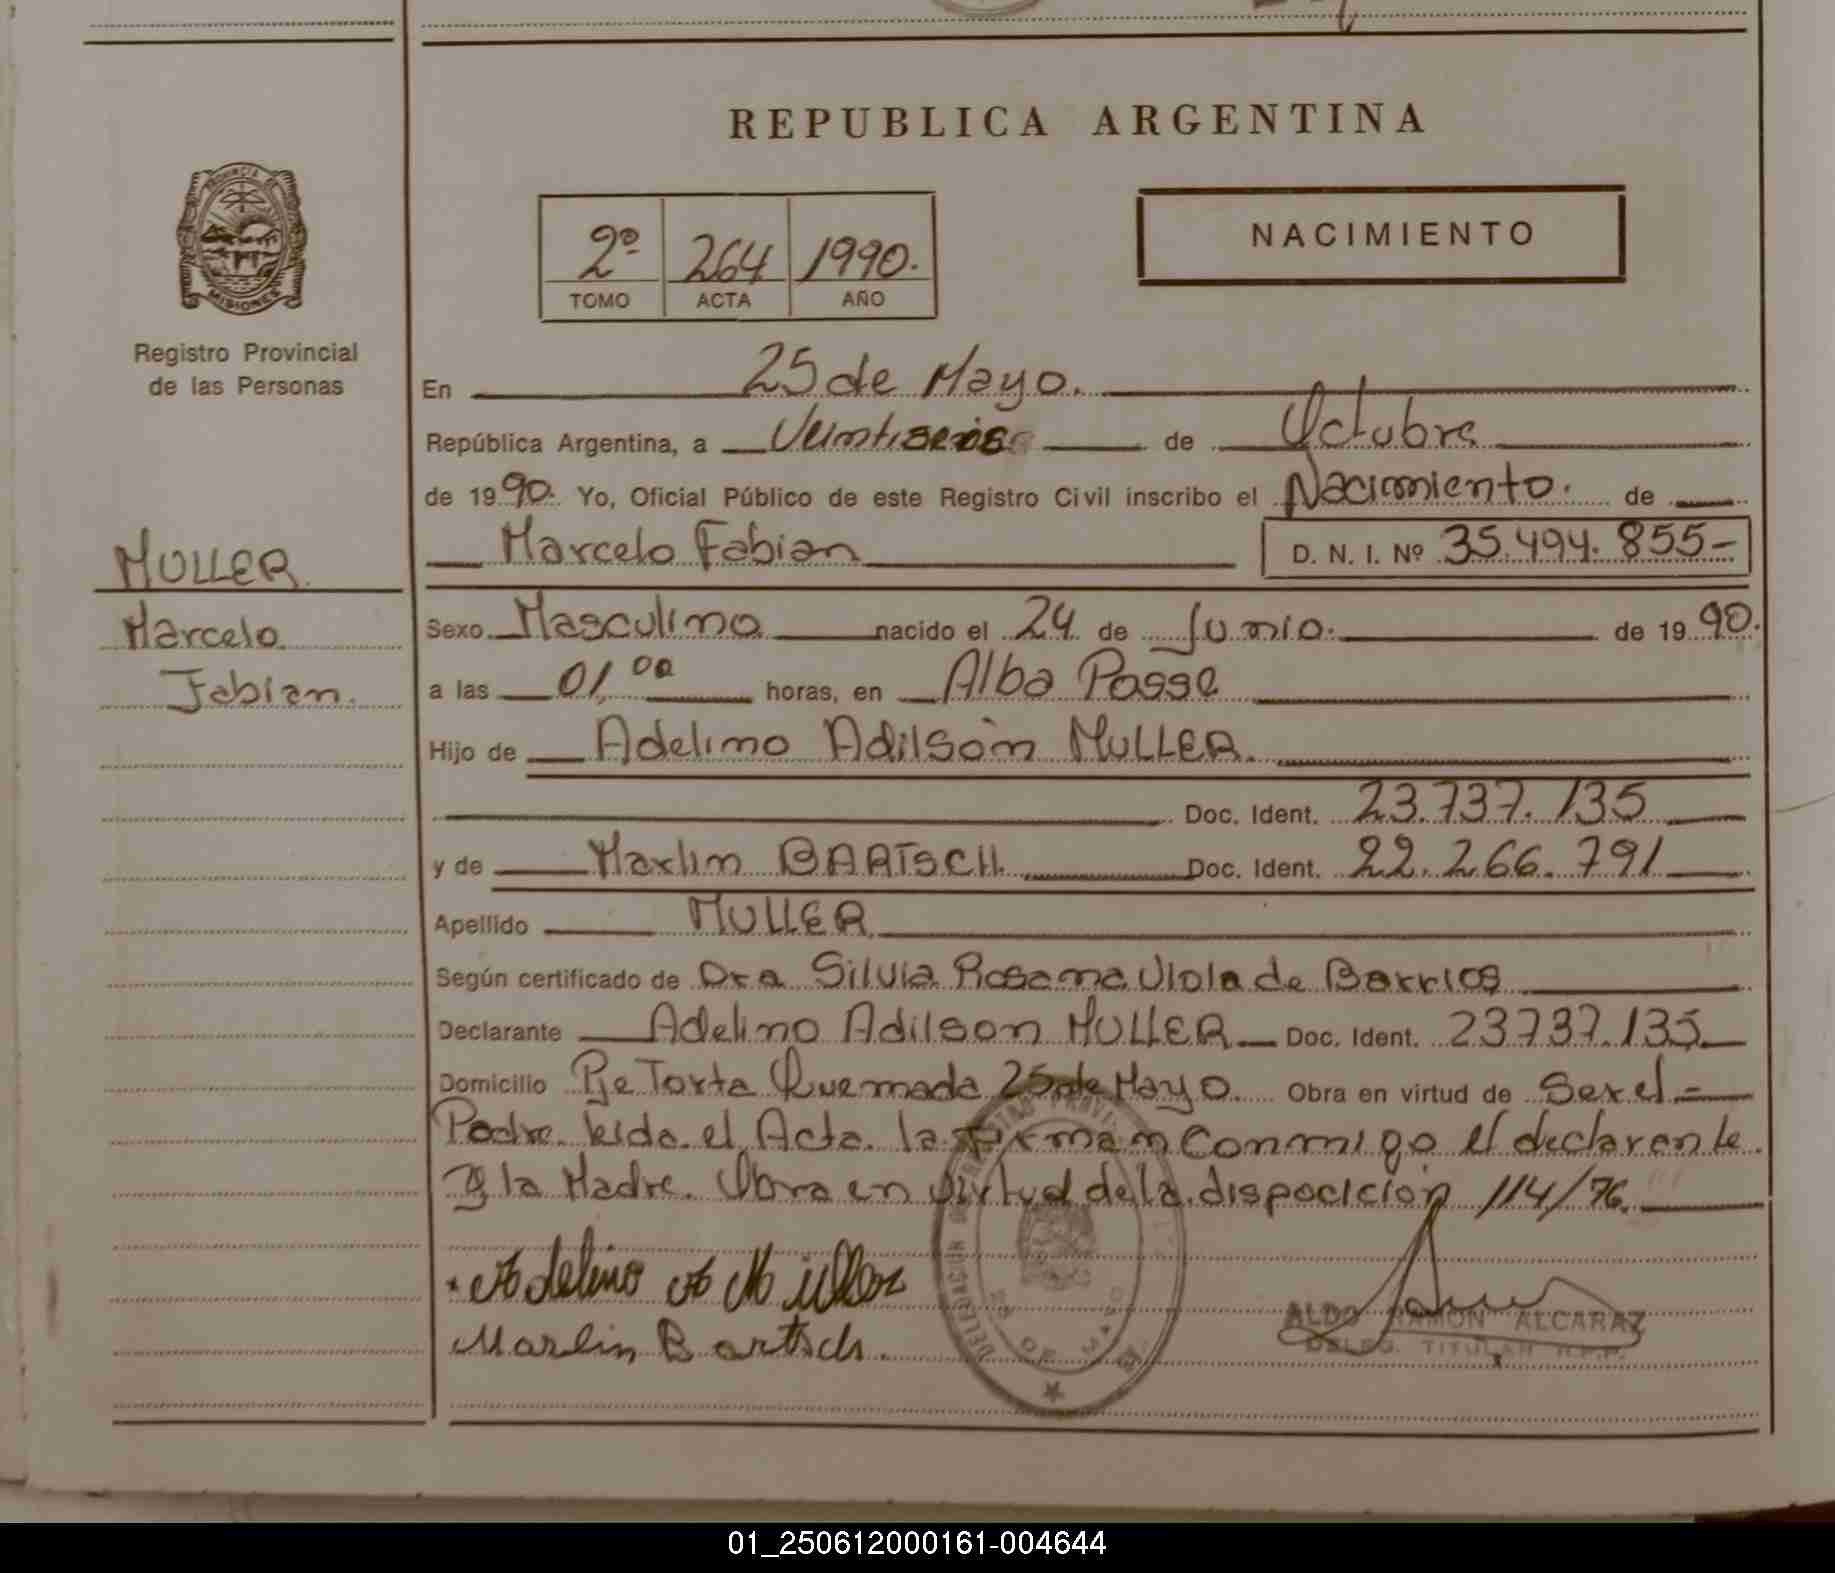 REPUBLICA ARGENTINA
PROVINCIA DE
MISIONES
Registro Provincial
de las Personas
2º 264 1990.
TOMO ACTA AÑO
NACIMIENTO
En 25 de Mayo.
República Argentina, a Veintiseis de Octubre
de 1990. Yo, Oficial Público de este Registro Civil inscribo el Nacimiento. de
Marcelo Fabian D. N. I. Nº 35.494.855-
MULLER
Marcelo
Fabian.
Sexo Masculino nacido el 24 de Junio. de 1990.
a las 01,00 horas, en Alba Posse
Hijo de Adelino Adilsòn MULLER.
Doc. Ident. 23.737.135
y de Marlin BARTSCH. Doc. Ident. 22.266.791
Apellido MULLER
Según certificado de Dra Silvia Rosana Viola de Barrios
Declarante Adelino Adilson MULLER Doc. Ident. 23737.135
Domicilio Pje Torta Quemada 25 de Mayo. Obra en virtud de Ser el =
Padre. leida el Acta. la firman Conmigo el declarante
y la Madre. Obra en virtud de la disposición 114/76.
Adelino A Müller
Marlin Bartsch.
ALDO RAMON ALCARAZ
DELEG. TITULAR R.P.P.
25 DE MAYO
01_250612000161-004644